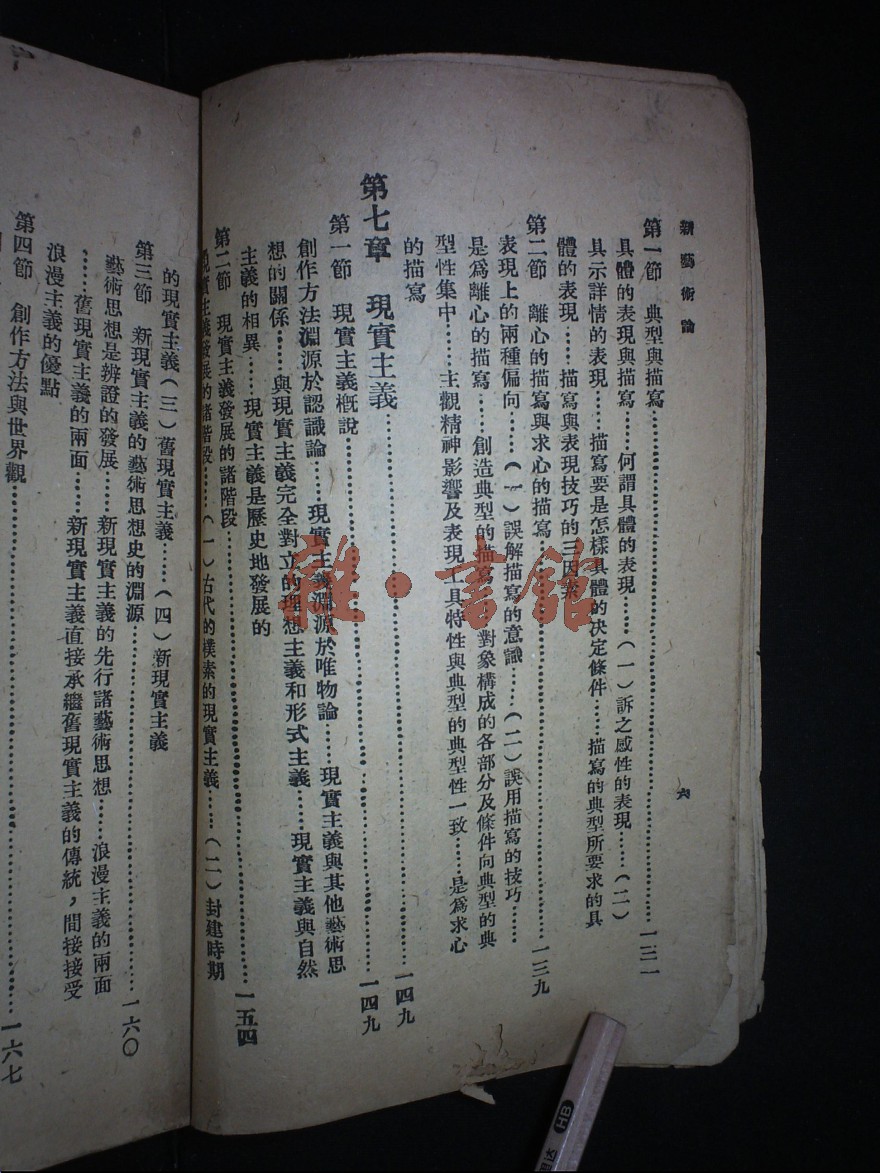 新藝術論
六
第一節 典型與描寫……一三一
具體的表現與描寫……何謂具體的表現……(一)訴之感性的表現……(二)
具示詳情的表現……描寫要是怎樣具體的决定條件……描寫的典型所要求的具
體的表現……描寫與表現技巧的三因素
第二節 離心的描寫與求心的描寫……一三九
表現上的兩種偏向……(一)誤解描寫的意識……(二)誤用描寫的技巧……
是爲離心的描寫……創造典型的描寫……對象構成的各部分及條件向典型的典
型性集中……主觀精神影響及表現工具特性與典型的典型性一致……是爲求心
的描寫
第七章 現實主義……一四九
第一節 現實主義概說……一四九
創作方法淵源於認識論……現實主義淵源於唯物論……現實主義與其他藝術思
想的關係……與現實主義完全對立的理想主義和形式主義……現實主義與自然
主義的相異……現實主義是歷史地發展的
第二節 現實主義發展的諸階段……一五四
現實主義發展的諸階段……(一)古代的樸素的現實主義……(二)封建時期
的現實主義(三)舊現實主義……(四)新現實主義
第三節 新現實主義的藝術思想史的淵源……一六〇
藝術思想是辨證的發展……新現實主義的先行諸藝術思想……浪漫主義的兩面
……舊現實主義的兩面……新現實主義直接承繼舊現實主義的傳統，間接接受
浪漫主義的優點
第四節 創作方法與世界觀……一六七
雜·書館
HB